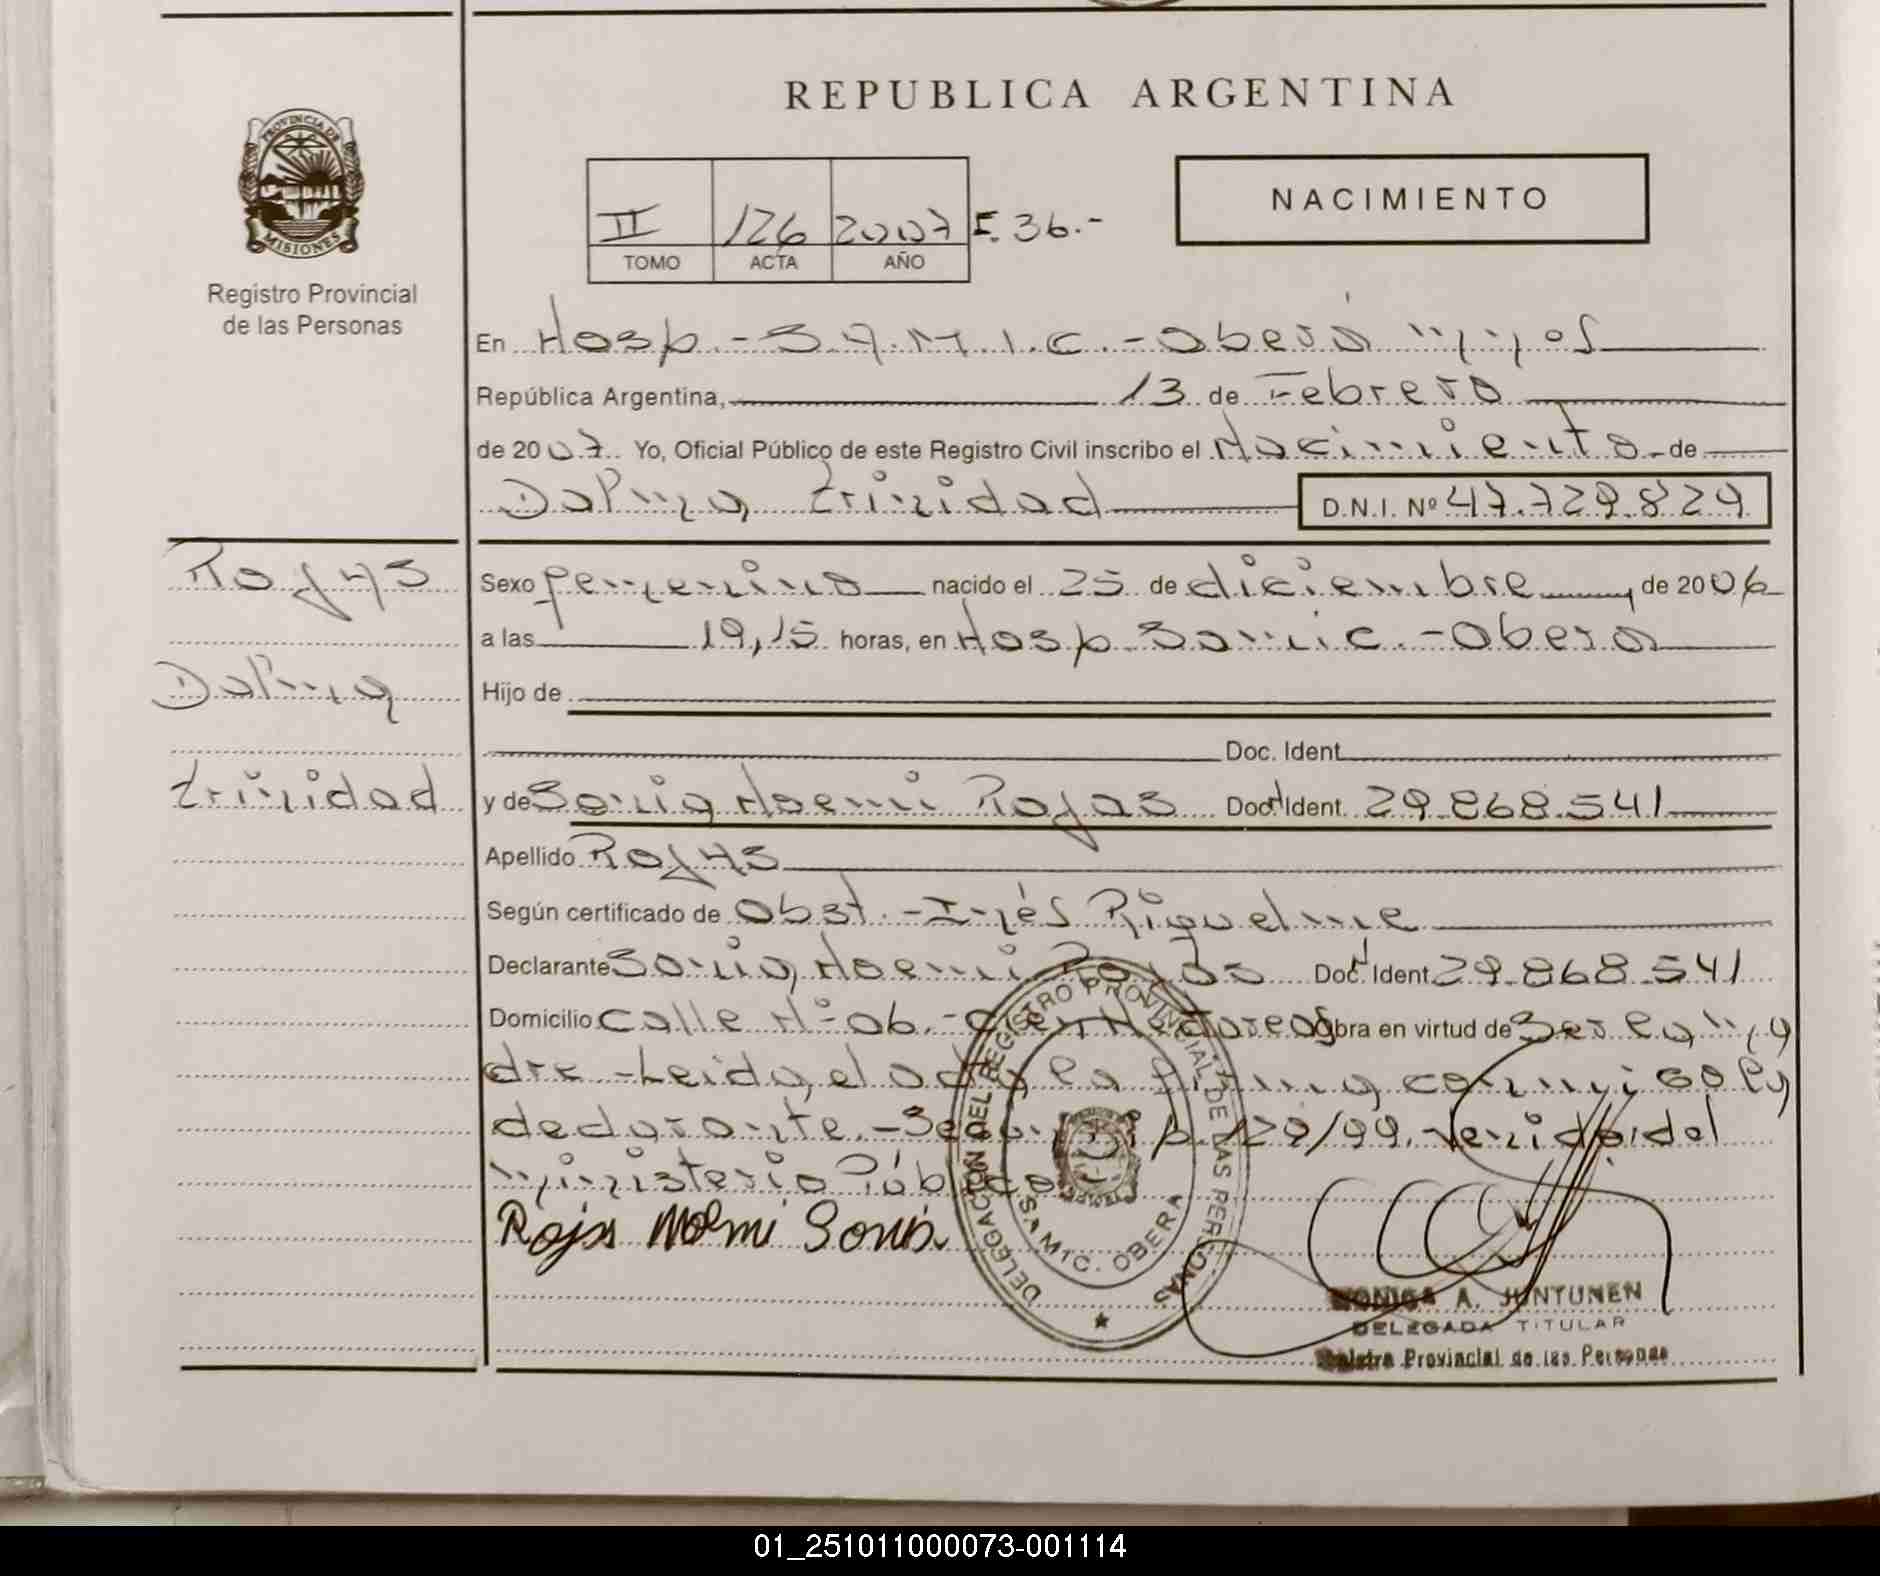 REPUBLICA ARGENTINA
PROVINCIA DE MISIONES
Registro Provincial
de las Personas
NACIMIENTO
II 126 2007 F. 36.-
TOMO ACTA AÑO
En Hosp.-S.A.M.I.C.-Oberá
República Argentina, 13 de Febrero
de 2007. Yo, Oficial Público de este Registro Civil inscribo el Nacimiento de
Dalma trinidad D.N.I. Nº 47.729.824
Rojas
Dalma
trinidad
Sexo femenino nacido el 25 de diciembre de 2006
a las 19,15 horas, en Hosp Samic.-Obera
Hijo de
Doc. Ident.
y de Sonia Noemi Rojas Doc. Ident. 29.868.541
Apellido Rojas
Según certificado de Obst.-Inés Riquelme
Declarante Sonia Noemi Rojas Doc. Ident. 29.868.541
Domicilio Calle Nº 06.- Obra en virtud de Ser la ma
dre -Leida el acta la firma conmigo la
declarante.- 129/99. Venida del
ministerio Público
Rojas Noemi Sonia
DELEGACION DEL REGISTRO PROVINCIAL DE LAS PERSONAS
SAMIC. OBERA
MONICA A. JUNTUNEN
DELEGADA TITULAR
Registro Provincial de las Personas
01_251011000073-001114